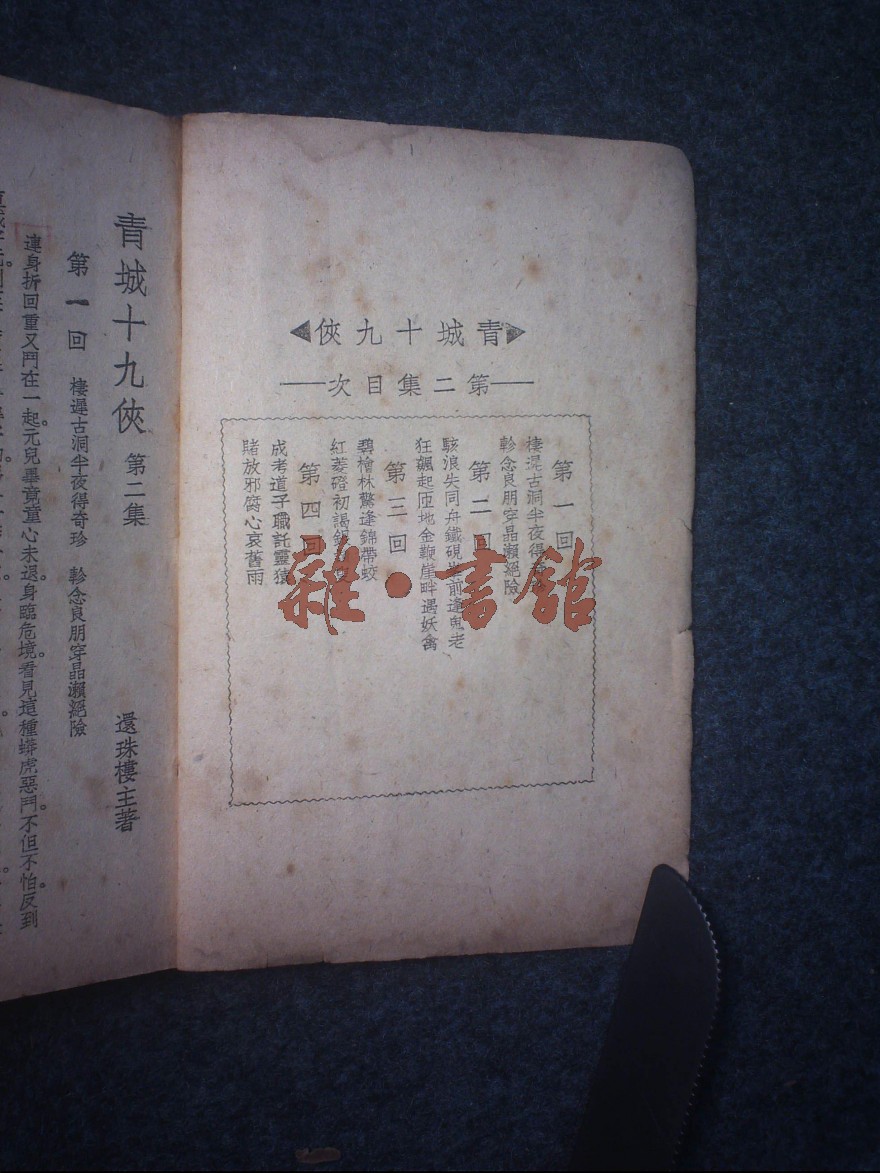 青城十九俠
第二集目次
第一回
棲遲古洞半夜得
軫念良朋穿晶瀨絕險
第二回
駭浪失同舟鐵硯 前逢鬼老
狂飆起匝地金鞭崖畔遇妖禽
第三回
碧檜林驚逢錦帶蛟
紅菱磴初謁銀
第四回
成考道子職託靈猿
賭放邪腐心哀舊雨
雜·書館
青城十九俠 第二集 還珠樓主著
第一回 棲遲古洞半夜得奇珍 軫念良朋穿晶瀨絕險
連身折回重又鬥在一起。元兒畢竟童心未退。身臨危境。看見這種蟒虎惡鬥。不但不怕。反到